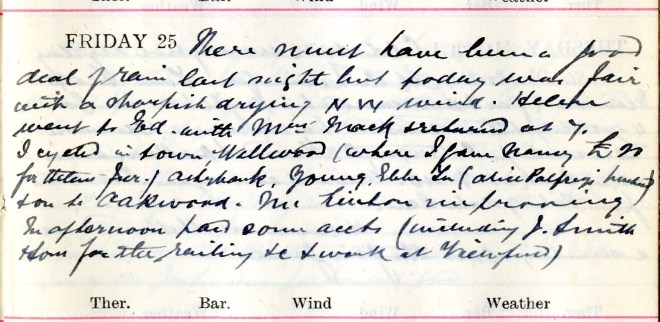 Ther. Bar. Wind Weather
FRIDAY 25 There must have been a good
deal of rain last night but today was fair
with a sharpish drying N W wind. Helen
went to Ed. with Mrs Mack & returned at 7.
I cycled in town, Wellwood (where I gave Nancy £20
for), Ashybank, Young, (Alice Palfrey's
& on to Oakwood. Mr improving
In afternoon paid some accts (including J. Smith
& Son for the railing &c & work at Viewfield)
Ther. Bar. Wind Weather